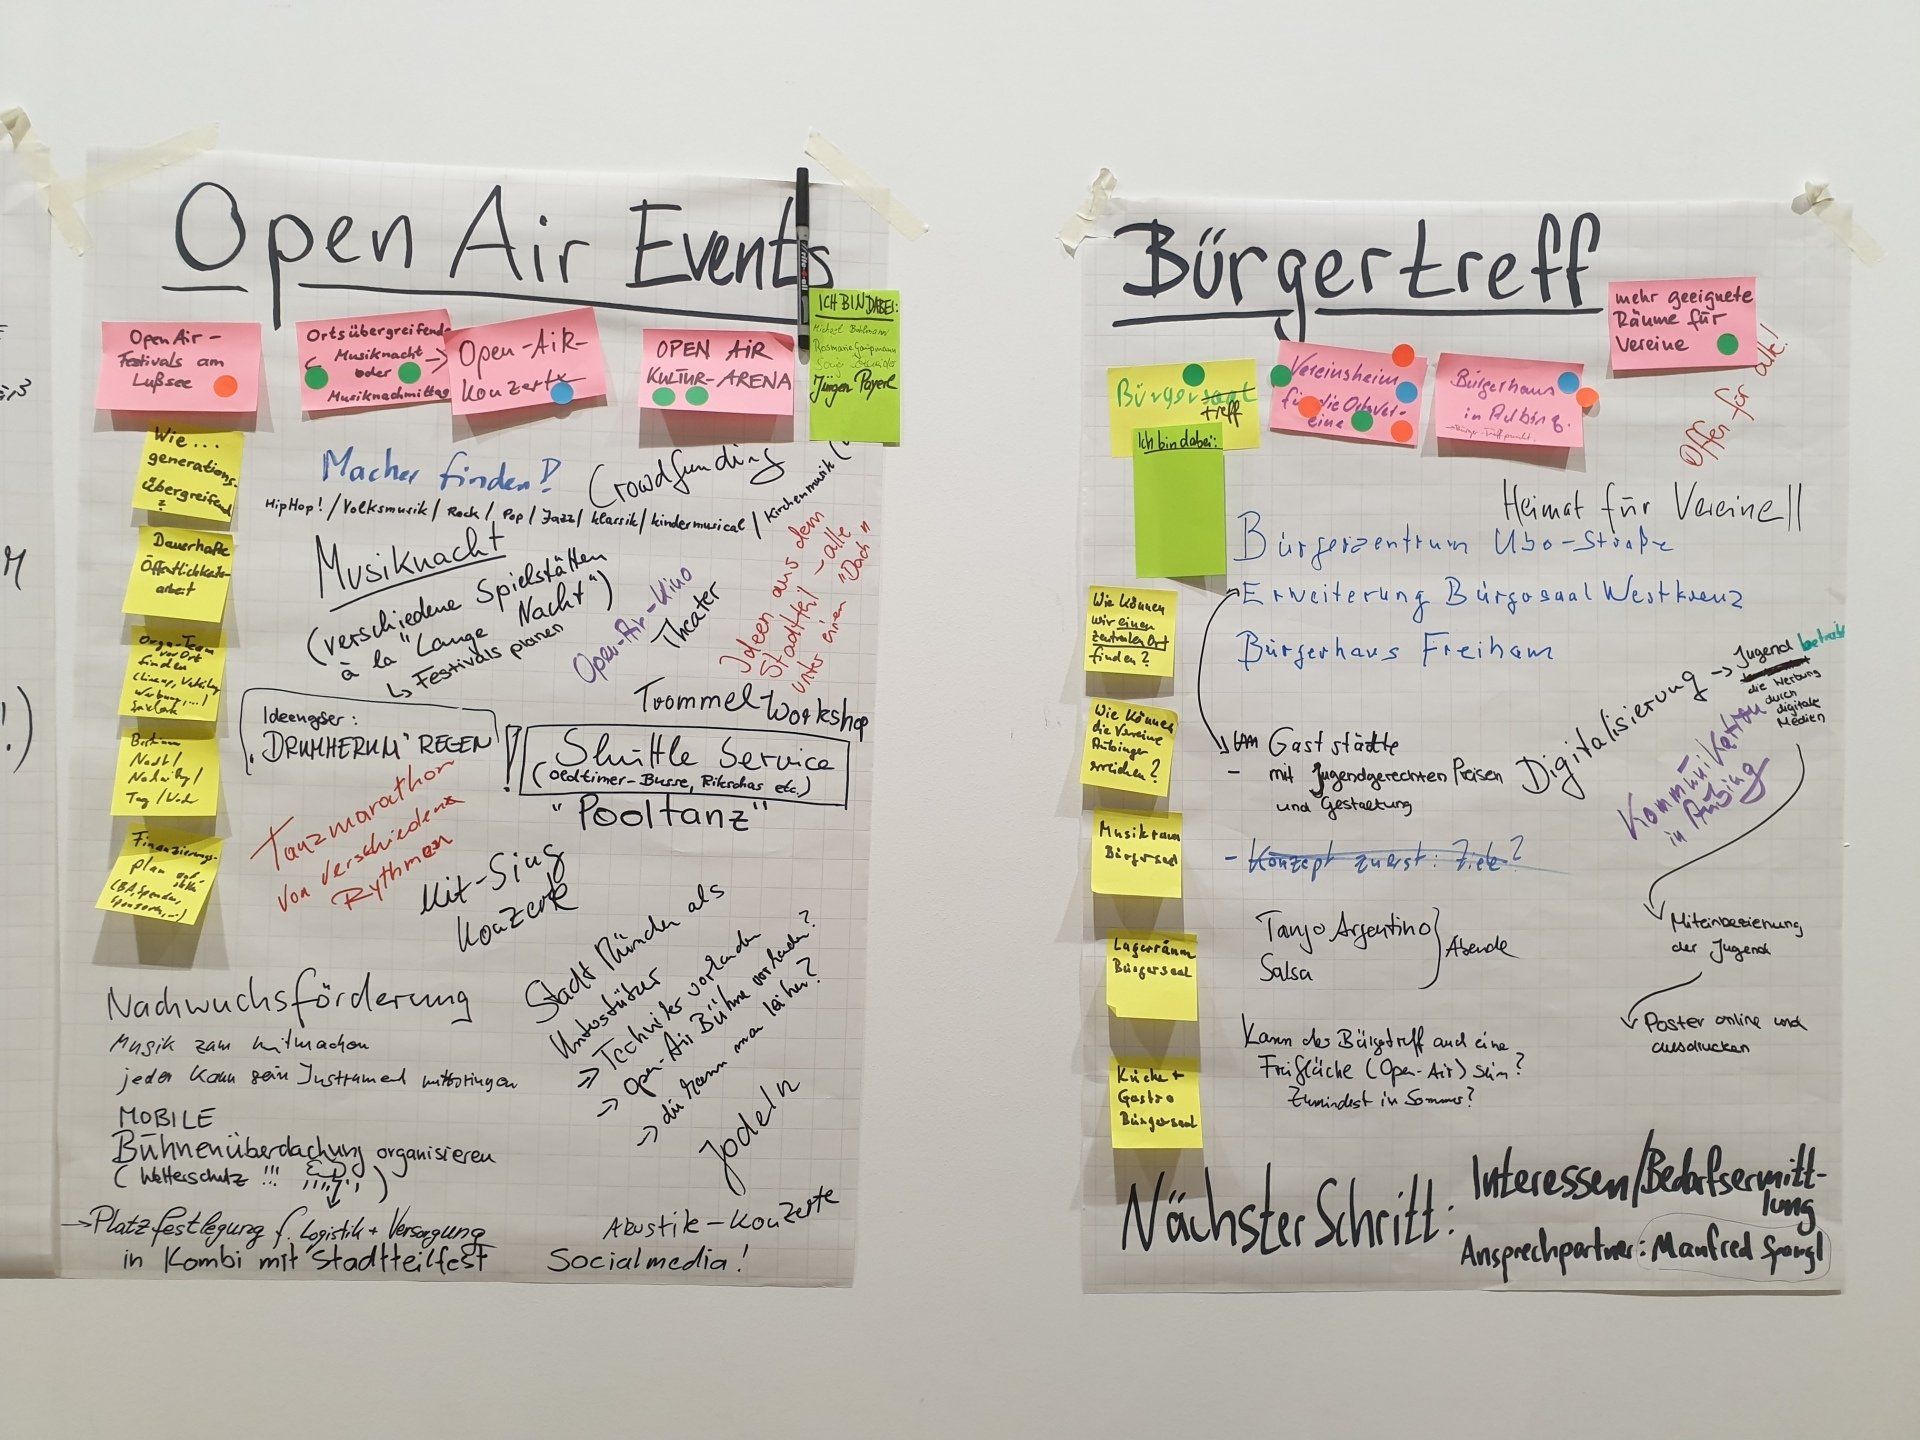 Open Air Events
Open Air -
Festivals am
Lußsee
Ortsübergreifende
Musiknacht
oder
Musiknachmittag
Open-Air-
Konzerte
OPEN AIR
KULTUR-ARENA
ICH BIN DABEI:
Jürgen Payerl
Wie...
generations-
übergreifend
?
Dauerhafte
Öffentlichkeits-
arbeit
Orga-Team
vor Ort
finden
Nacht/
Tag/
Finanzierungs-
plan
(BA, Spenden,
Sponsoren, ...)
Macher finden!
Crowdfunding
HipHop! / Volksmusik / Rock / Pop / Jazz / Klassik / Kindermusical / Kirchenmusik
Musiknacht
(verschiedene Spielstätten
à la "Lange Nacht")
↳ Festivals planen
Open-Air-Kino
Theater
Ideen aus dem
Stadtteil - alle
unter einen "Dach"
Trommel-Workshop
Ideengeber:
"DRUMHERUM" REGEN
! Shuttle Service
(Oldtimer-Busse, Rikschas etc.)
"Pooltanz"
Tanzmarathon
von verschiedenen
Rythmen
Mit-Sing
Konzerte
Stadt München als
Unterstützer
→ Techniker vorhanden
→ Open-Air Bühne vorhanden?
→ die kann man leihen?
Jodeln
Nachwuchsförderung
Musik zum mitmachen
jeder kann sein Instrument mitbringen
MOBILE
Bühnenüberdachung organisieren
(Wetterschutz !!! )
→ Platzfestlegung f. Logistik + Versorgung
in Kombi mit Stadtteilfest
Akustik-Konzerte
Socialmedia!
Bürgertreff
mehr geeignete
Räume für
Vereine
Bürgersaal
treff
Vereinsheim
für die Ortsver-
eine
Bürgerhaus
in Aubing.
Offen für alle!
Ich bin dabei:
Heimat für Vereine!!
Bürgerzentrum Ubo-Straße
Erweiterung Bürgersaal Westkreuz
Bürgerhaus Freiham
Wie können
wir einen
zentralen Ort
finden?
Wie können
die Vereine
Aubinger
erreichen?
Musikraum
Bürgersaal
Lagerräume
Bürgersaal
Küche +
Gastro
Bürgersaal
Gaststätte
- mit Jugendgerechten Preisen
und Gestaltung
- Konzept zuerst: Ziele?
Digitalisierung → Jugend
die Werbung
durch
digitale
Medien
Kommunikation
in Aubing
Tango Argentino
Salsa
} Abende
Miteinbeziehung
der Jugend
Poster online und
ausdrucken
Kann der Bürgertreff auch eine
Freifläche (Open-Air) sein?
Zumindest im Sommer?
Nächster Schritt:
Interessen/Bedarfsermitt-
lung
Ansprechpartner: Manfred Spangl